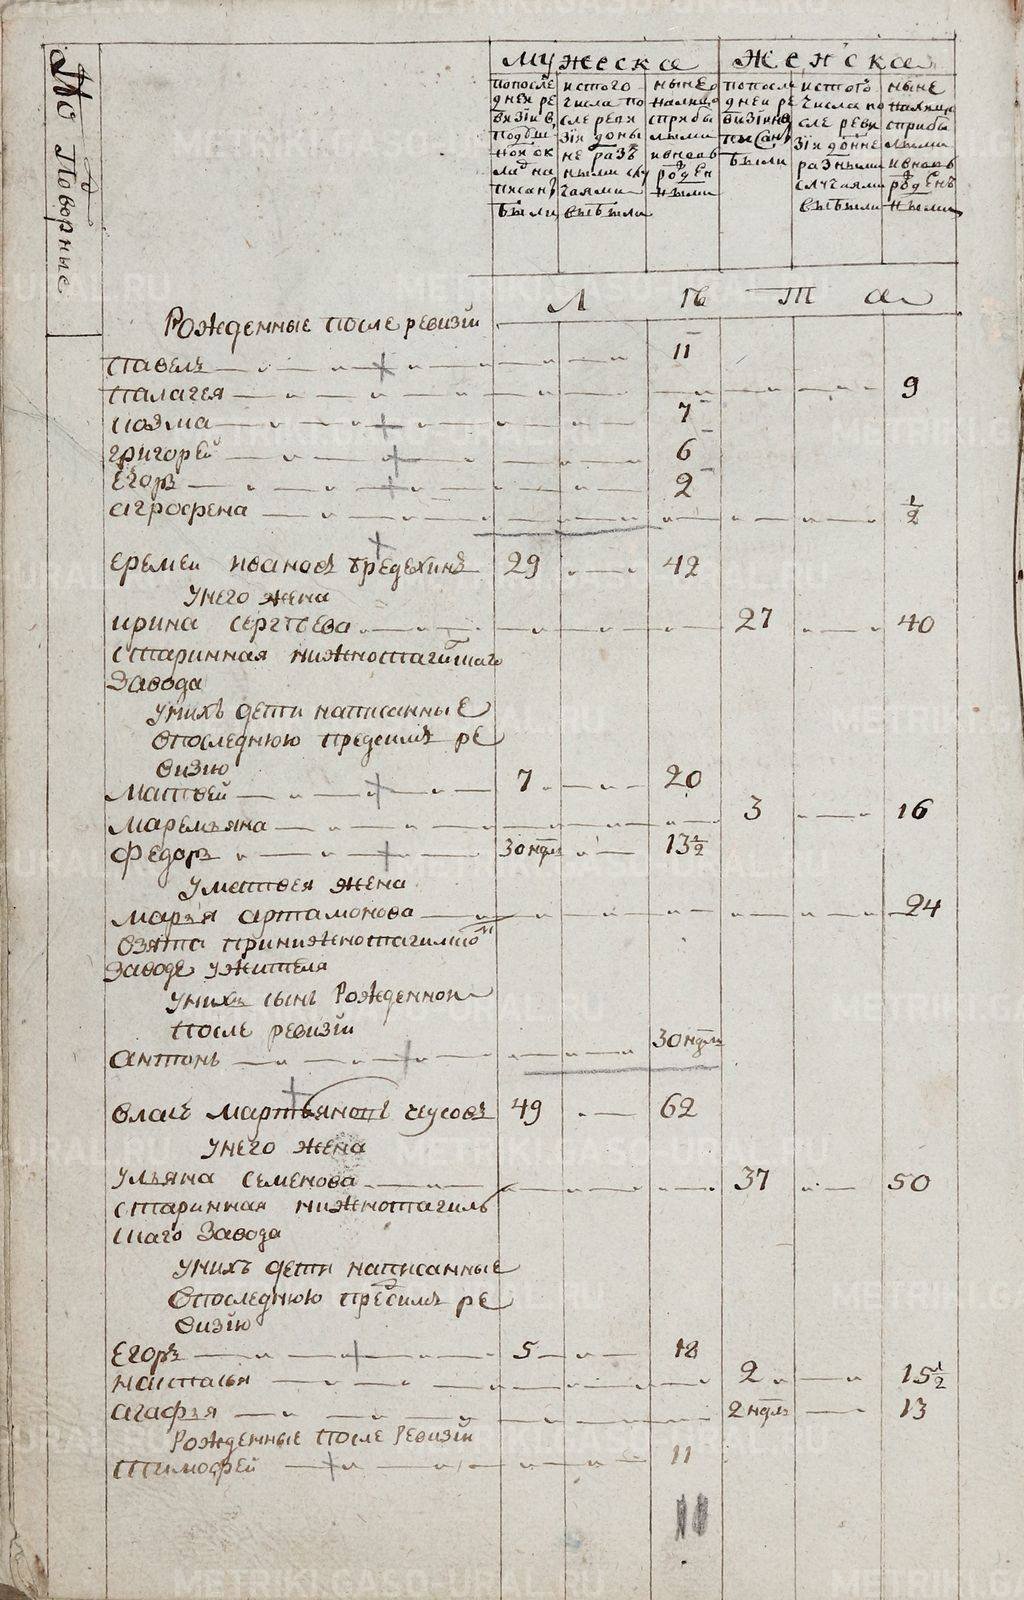 Подворные
мужеска женска
попосле дней ре визіи в подуш ной ок лад на писаны были
истого числа по сле реви зіи доны не разъ ными слу чаями выбыли
ныне налицо сприбы лыми ивновь рожден ными
попосле дней ре визіи на писаны были
истого числа по сле реви зіи доныне разными случаями выбыли
ныне налицо сприбы лыми ивновь рожденъ ными
Л ѣ т а
Рожденные после ревизіи
павелъ 11
палагея 9
козма 7
григорей 6
егоръ 2
агрофена 1/2
еремей ивановъ бредехинъ 29 42
унего жена
ирина сергѣева 27 40
старинная нижнотагилскаго
завода
унихъ дети написанные
впоследнюю предсимъ ре
визию
матвей 7 20
маремьяна 3 16
федоръ 30 ндлъ 13 1/2
уматвея жена
марья артамонова 24
взята принижнотагилском
заводе ужителя
унихъ сынъ рожденной
после ревизіи
антонъ 30 ндлъ
власъ мартьяновъ чусовъ 49 62
унего жена
ульяна семенова 37 50
старинная нижнотагиль
скаго завода
унихъ дети написанные
впоследнюю предсимъ ре
визію
егоръ 5 18
наталья 2 15 1/2
агафья 2 ндлъ 13
Рожденные после ревизіи
тимофей 11